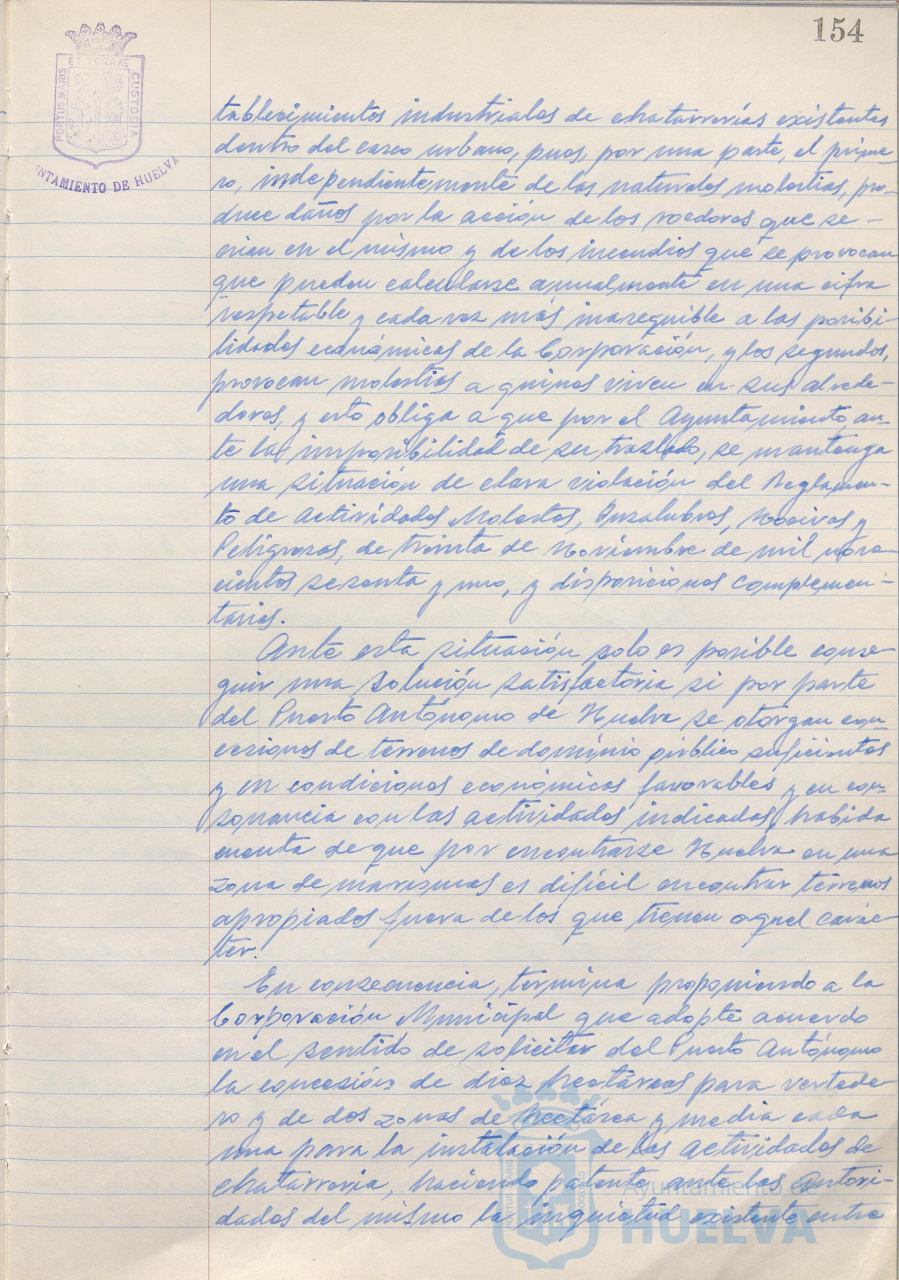 154
PORTUS MARIS ET TERRAE CUSTODIA
AYUNTAMIENTO DE HUELVA
tablecimientos industriales de chatarrerías existentes
dentro del casco urbano, pues, por una parte, el prime-
ro, independientemente de las naturales molestias, pro-
duce daños por la acción de los roedores que se
crian en el mismo y de los incendios que se provocan
que pueden calcularse anualmente en una cifra
respetable y cada vez más inasequible a las posibi-
lidades económicas de la Corporación, y los segundos,
provocan molestias a quines viven en sus alrede-
dores, y esto obliga a que por el Ayuntamiento, an-
te la imposibilidad de su traslado, se mantenga
una situación de clara violación del Reglamen-
to de Actividades Molestas, Insalubres, Nocivas y
Peligrosas, de treinta de Noviembre de mil nove-
cientos sesenta y uno, y disposiciones complemen-
tarias.
Ante esta situación solo es posible conse-
guir una solución satisfactoria si por parte
del Puerto Autónomo de Huelva se otorgan con-
cesiones de terrenos de dominio público suficientes
y en condiciones económicas favorables y en con-
sonancia con las actividades indicadas, habida
cuenta de que por encontrarse Huelva en una
zona de marismas es difícil encontrar terrenos
apropiados fuera de los que tienen aquel carác-
ter.
En consecuencia, termina proponiendo a la
Corporación Municipal que adopte acuerdo
en el sentido de solicitar del Puerto Autónomo
la concesión de diez hectáreas para vertede-
ro y de dos zonas de hectárea y media cada
una para la instalación de las actividades de
chatarreria, haciendo patente ante las Autori-
dades del mismo la inquietud existente entre
Ayuntamiento de
HUELVA